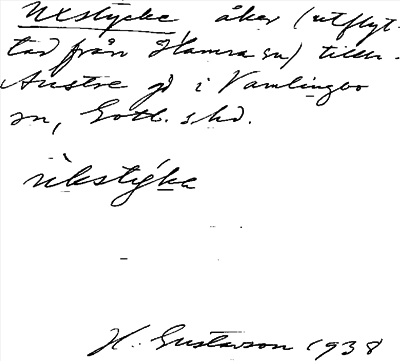 Uxstycke åker (utflyt-
tad från Hamra sn) tillh.
Austre gd i Vamlingbo
sn, Gotl. shd.
ùkstyka
H. Gustavson 1938